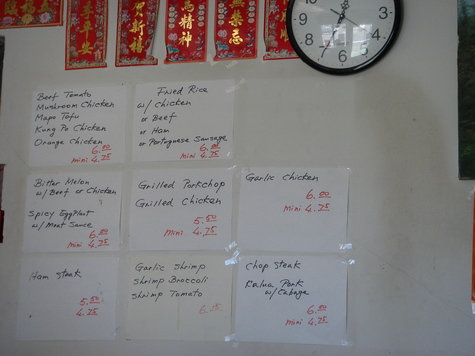 馬精神
Beef Tomato
Mushroom Chicken
Mapo Tofu
Kung Po Chicken
Orange Chicken
6.50
mini 4.25
Fried Rice
w/ Chicken
or Beef
or Ham
or Portuguese Sausage
mini 4.25
Bitter Melon
w/ Beef or Chicken
Spicy Eggplant
w/ Meat Sauce
6.50
mini 4.25
Grilled Porkchop
Grilled Chicken
5.50
mini 4.25
Garlic Chicken
6.50
mini 4.25
Ham Steak
5.50
4.25
Garlic Shrimp
Shrimp Broccoli
Shrimp Tomato
Chop Steak
Kalua Pork
w/ Cabage
6.50
mini 4.25